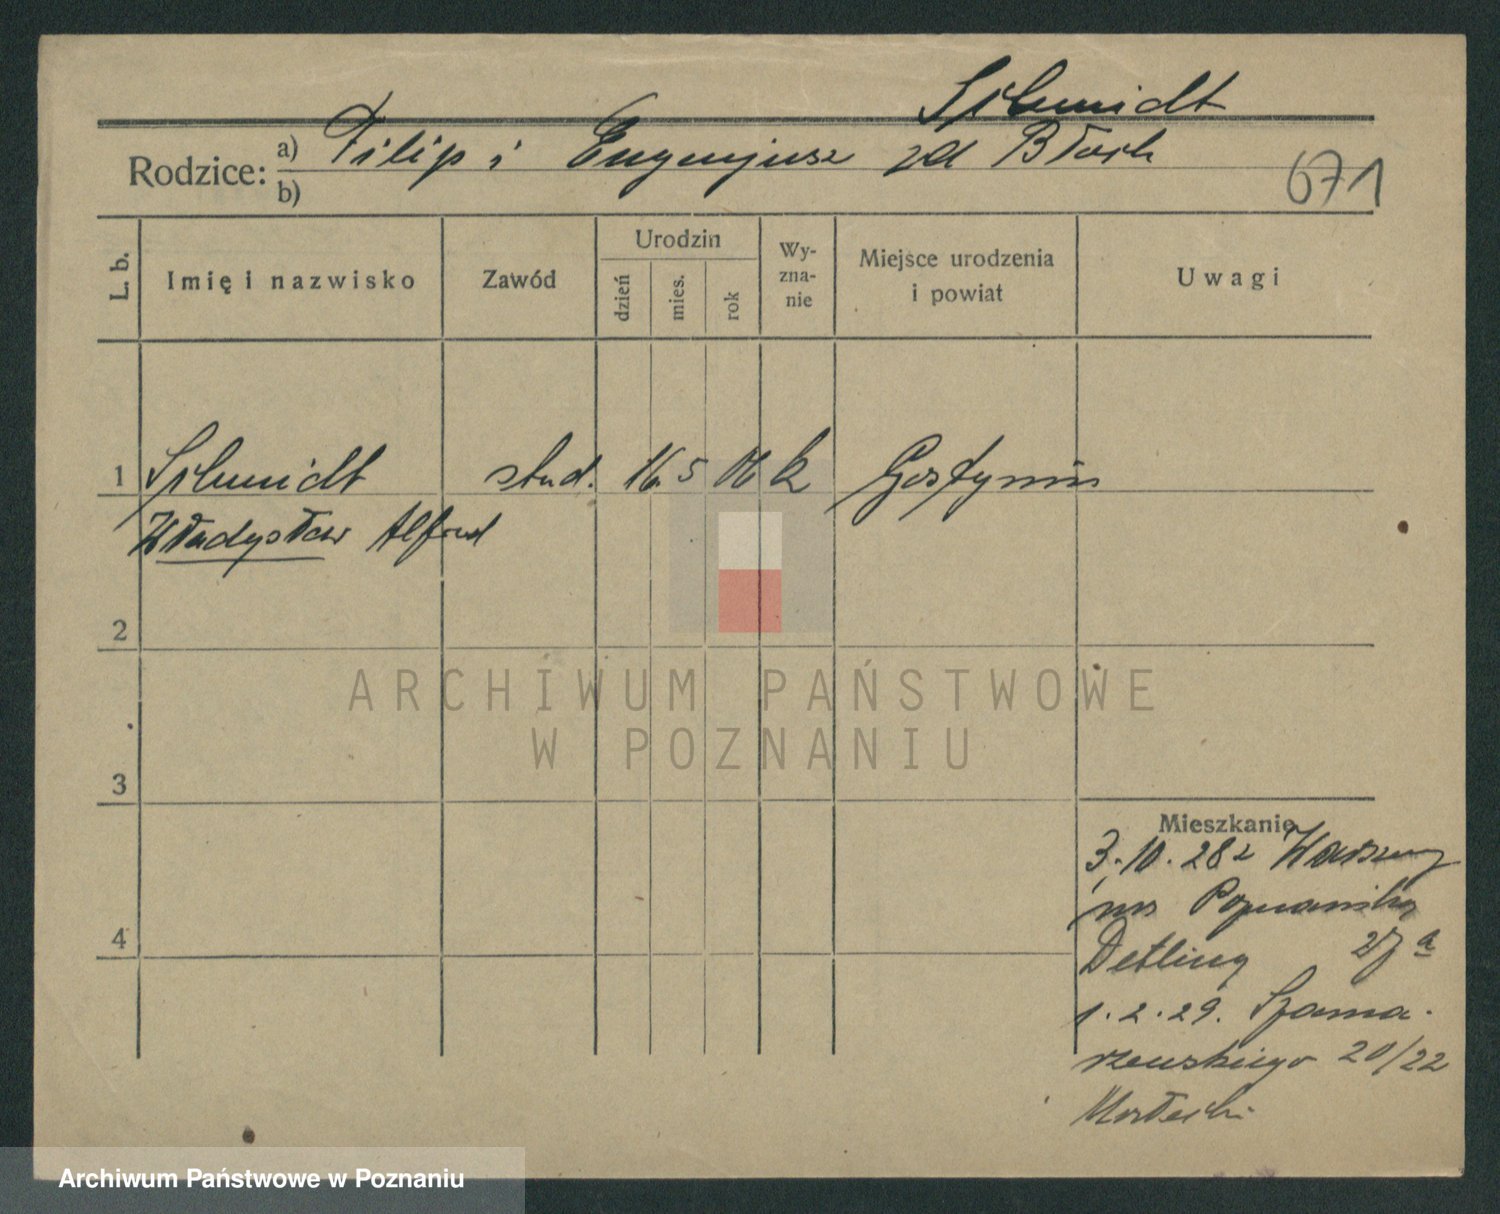 Schmidt
Rodzice: a) Filip i Eugenjusz zd Błoch
b)
671
L. b. Imię i nazwisko Zawód Urodzin dzień mies. rok Wy-zna-nie Miejsce urodzenia i powiat Uwagi
1 Schmidt stud. 16 5 06 k Gostynin
Władysław Alfred
2
3
4
Mieszkanie
3.10.28 z Warszawy
Poznański
Detling 27 a
1.2.29. Szama-
rzewskiego 20/22
ARCHIWUM PAŃSTWOWE
W POZNANIU
Archiwum Państwowe w Poznaniu